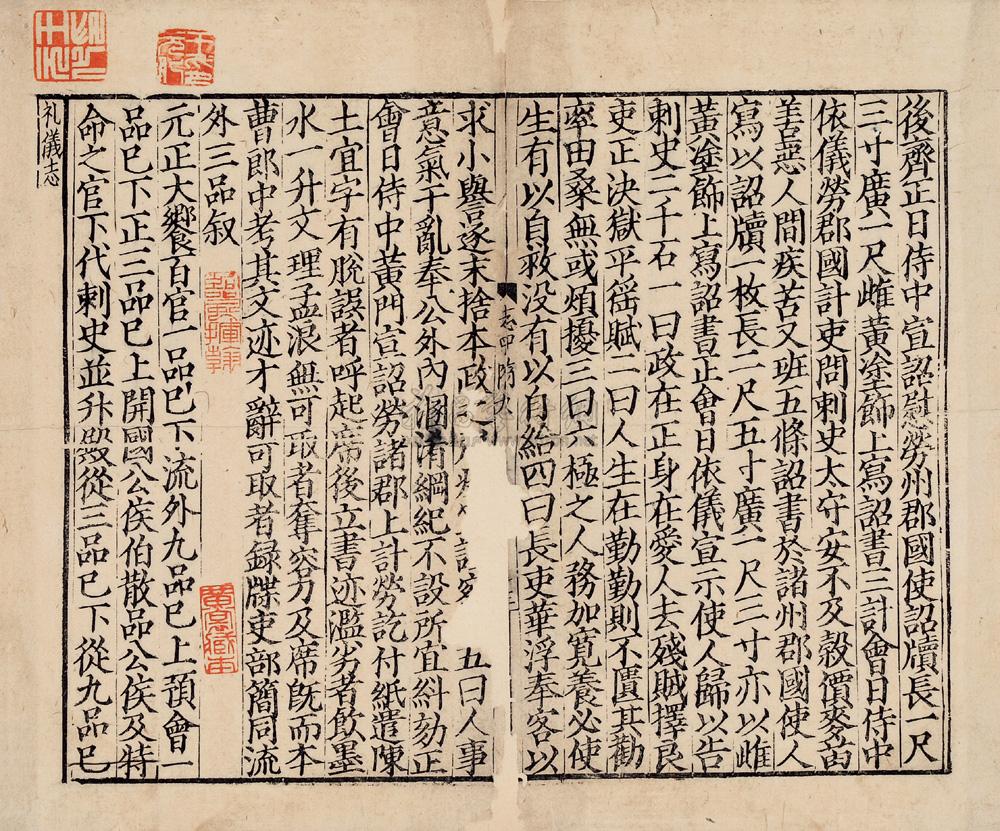 後齊正日侍中宣詔慰勞州郡國使詔牘長一尺
三寸廣一尺雌黃塗飾上寫詔書三計會日侍中
依儀勞郡國計吏問刺史太守安不及穀價麥苗
善惡人間疾苦又班五條詔書於諸州郡國使人
寫以詔牘一枚長二尺五寸廣一尺三寸亦以雌
黃塗飾上寫詔書正會日依儀宣示使人歸以告
刺史二千石一曰政在正身在愛人去殘賊擇良
吏正決獄平徭賦二曰人生在勤勤則不匱其勸
率田桑無或煩擾三曰六極之人務加寬養必使
生有以自救没有以自給四曰長吏華浮奉客以
志四 隋九
求小譽逐末捨本政 五曰人事
意氣干亂奉公外內溷淆綱紀不設所宜糾劾正
會日侍中黃門宣詔勞諸郡上計勞訖付紙遣陳
土宜字有脫誤者呼起席後立書迹濫劣者飲墨
水一升文理孟浪無可取者奪容刀及席既而本
曹郎中考其文迹才辭可取者録牒吏部簡同流
外三品叙
元正大饗百官一品已下流外九品已上預會一
品已下正三品已上開國公侯伯散品公侯及特
命之官下代刺史並升殿從三品已下從九品已
礼儀志